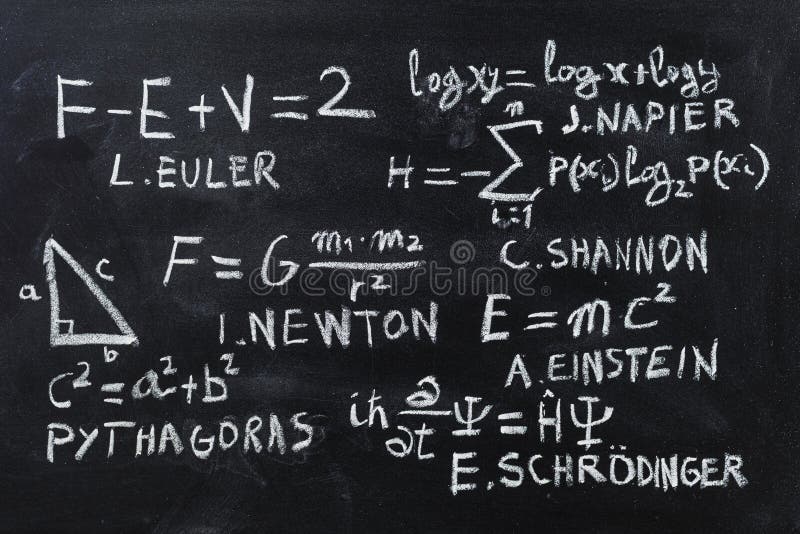 F-E+V=2
L.EULER
log xy = log x + log y
J.NAPIER
H = -∑ P(xᵢ) log₂ P(xᵢ)
n
i=1
C.SHANNON
a
c
b
F = G m₁·m₂ / r²
I.NEWTON
E = mc²
A.EINSTEIN
c² = a² + b²
PYTHAGORAS
iħ ∂/∂t Ψ = ĤΨ
E.SCHRÖDINGER
dreamstime